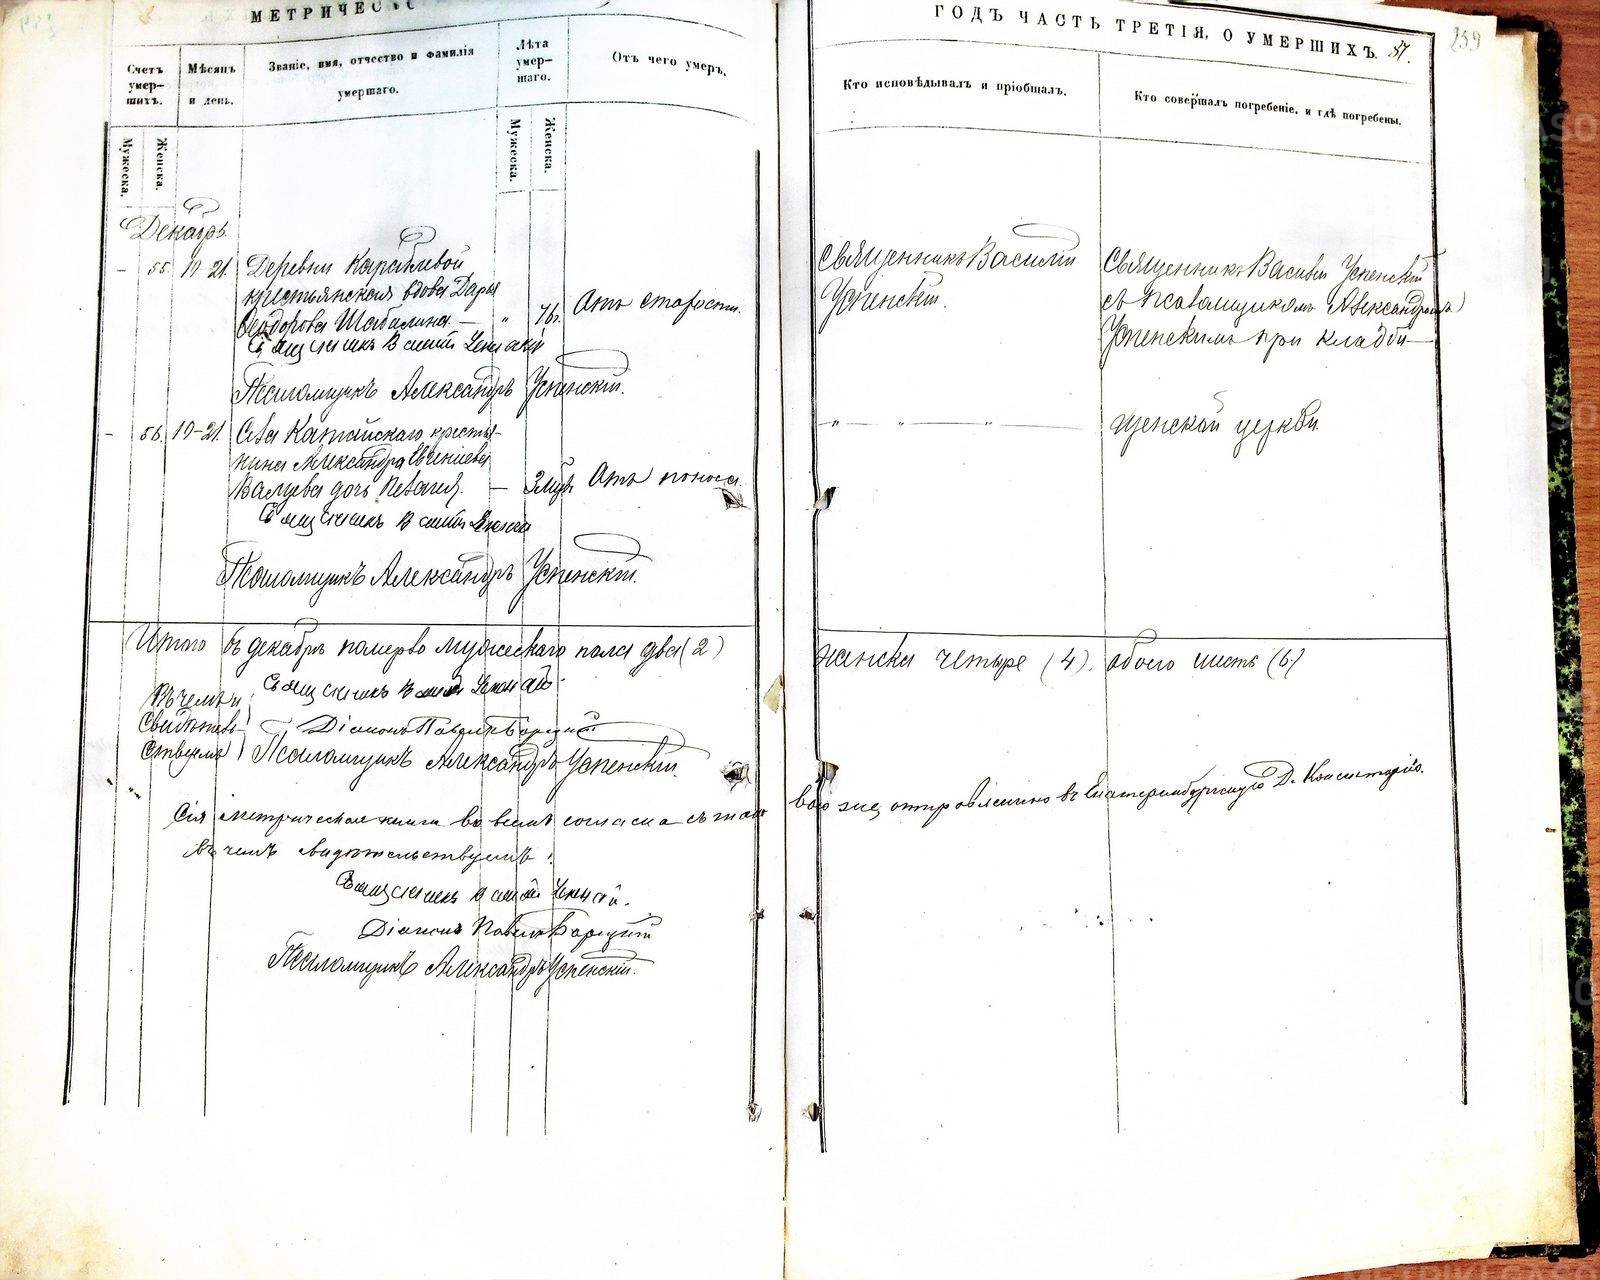 МЕТРИЧЕС
Счетъ умер-шихъ.
Мѣсяцъ и день.
Званіе, имя, отчество и фамилія умершаго.
Лѣта умер-шаго.
Отъ чего умеръ.
Мужеска.
Женска.
Мужеска.
Женска.
Декабрь
55. 19-21. Деревни
крестьянская вдова Дарья
Ѳеодорова Шабалина — " 76. Отъ старости.
Священникъ Василій Успенскій
Псаломщикъ Александръ Успенскій.
56. 19-21. Села Катайскаго крестья-
нина Александра Евгеніева
дочь Пелагія. — 3 мѣс. Отъ поноса.
Священникъ Василій Успенскій
Псаломщикъ Александръ Успенскій.
Итого въ декабрѣ померло мужескаго пола два (2)
Священникъ Василій Успенскій.
Въ чемъ и
свидѣтель-
ствуемъ
Діаконъ Павелъ
Псаломщикъ Александръ Успенскій.
Сія метрическая книга во всемъ согласна съ тако
въ чемъ свидѣтельствуемъ:
Священникъ Василій Успенскій.
Діаконъ Павелъ
Псаломщикъ Александръ Успенскій.
ГОДЪ ЧАСТЬ ТРЕТІЯ, О УМЕРШИХЪ. 87.
259
Кто исповѣдывалъ и пріобщалъ.
Кто совершалъ погребеніе, и гдѣ погребены.
Священникъ Василій
Успенскій.
Священникъ Василій Успенскій
съ псаломщикомъ Александромъ
Успенскимъ при кладби-
— " — " — " —
щенской церкви.
женска четыре (4), обоего шесть (6)
вою же, отправленною въ Екатеринбургскую Д. Консисторію.